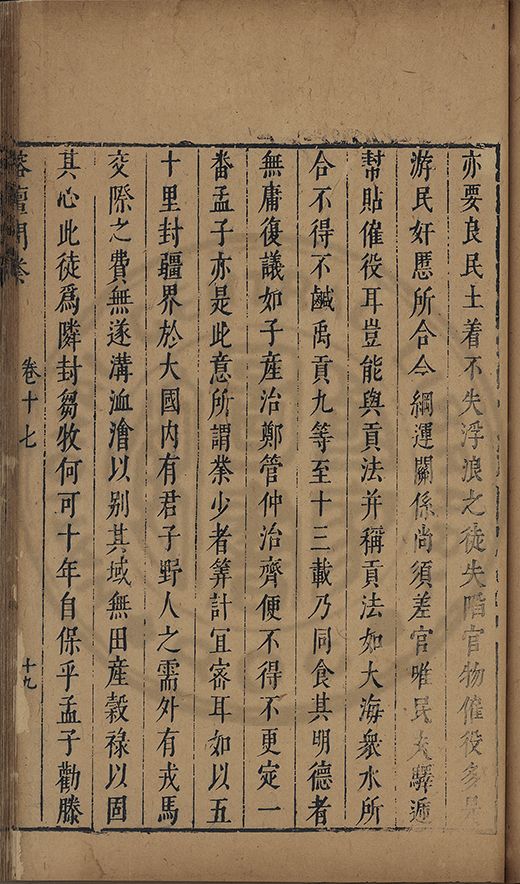 亦要良民土着不失浮浪之徒失階官物催役多是
游民奸慝所合今綱運關係尚須差官唯民夫驛遞
幫貼催役耳豈能與貢法并稱貢法如大海衆水所
合不得不鹹禹貢九等至十三載乃同食其明德者
無庸復議如子產治鄭管仲治齊便不得不更定一
畨孟子亦是此意所謂業少者筭計宜宻耳如以五
十里封疆界於大國內有君子野人之需外有戎馬
交際之費無遂溝洫澮以别其域無田産穀祿以固
其心此徒爲隣封芻牧何可十年自保乎孟子勸滕
榕壇問業
卷十七
十九